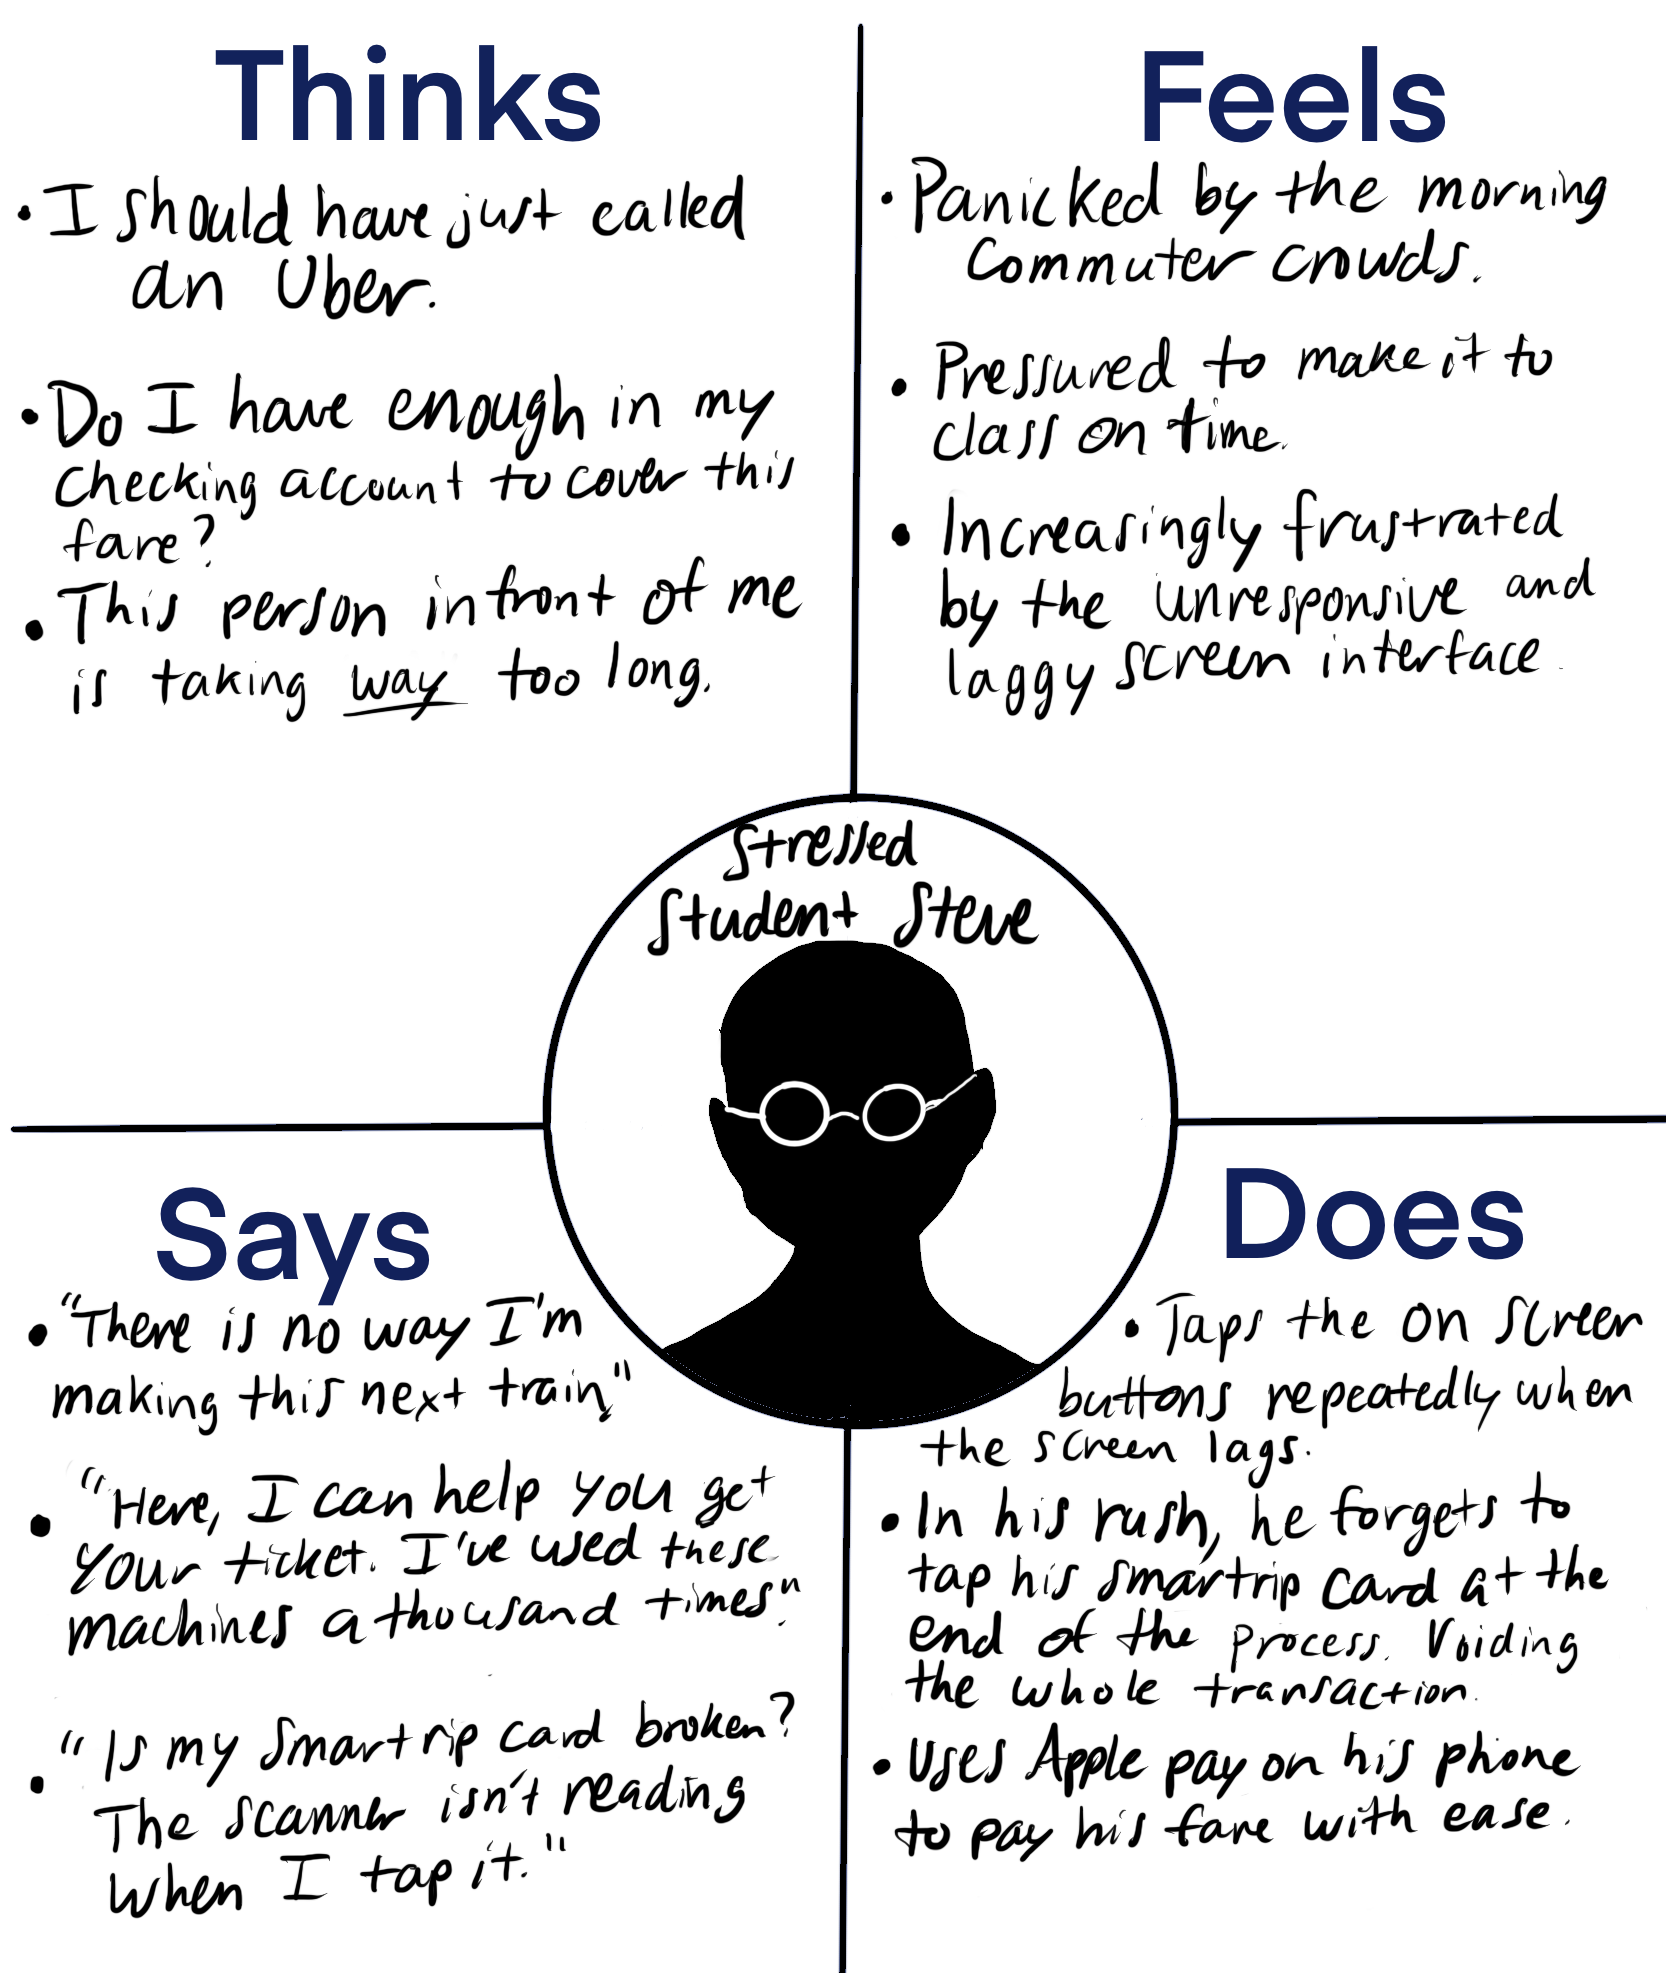 Thinks
• I should have just called
an Uber.
• Do I have enough in my
checking account to cover this
fare?
• This person in front of me
is taking way too long.
Feels
• Panicked by the morning
commuter crowds.
• Pressured to make it to
class on time.
• Increasingly frustrated
by the unresponsive and
laggy screen interface.
Stressed
Student Steve
Says
• "There is no way I'm
making this next train."
• "Here, I can help you get
your ticket. I've used these
machines a thousand times".
• "Is my smartrip card broken?
The scanner isn't reading
when I tap it."
Does
• Taps the on screen
buttons repeatedly when
the screen lags.
• In his rush, he forgets to
tap his smartrip card at the
end of the process. Voiding
the whole transaction.
• Uses Apple pay on his phone
to pay his fare with ease.